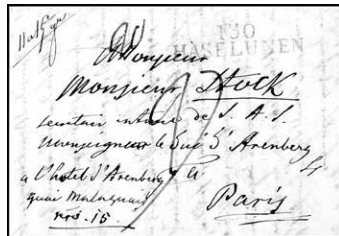 130
HASELUNEN
A Monsieur
Monsieur Stock
secretaire intime de S. A. S.
Monseigneur le Duc d'Arenberg
a L'hotel d'Arenberg
a
quai Malaquais
nro. 15.
Paris